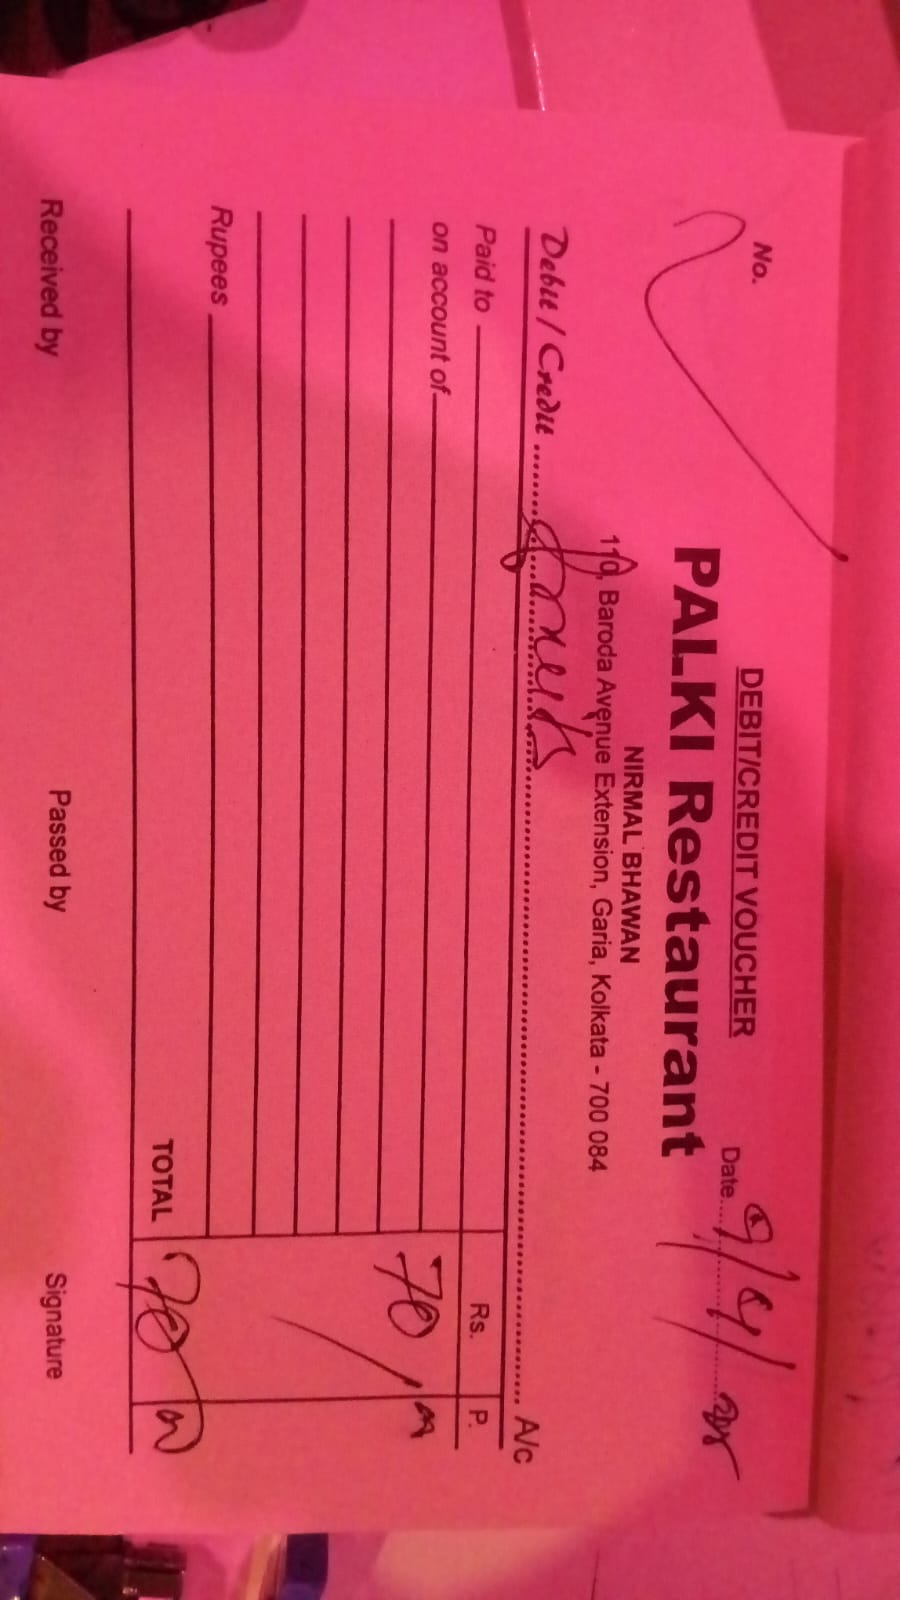 DEBIT/CREDIT VOUCHER
No.
Date
PALKI Restaurant
NIRMAL BHAWAN
110, Baroda Avenue Extension, Garia, Kolkata - 700 084
Debit / Credit .......... A/c
Paid to
Rs. P.
on account of
70/
Rupees
TOTAL 70
Received by Passed by Signature